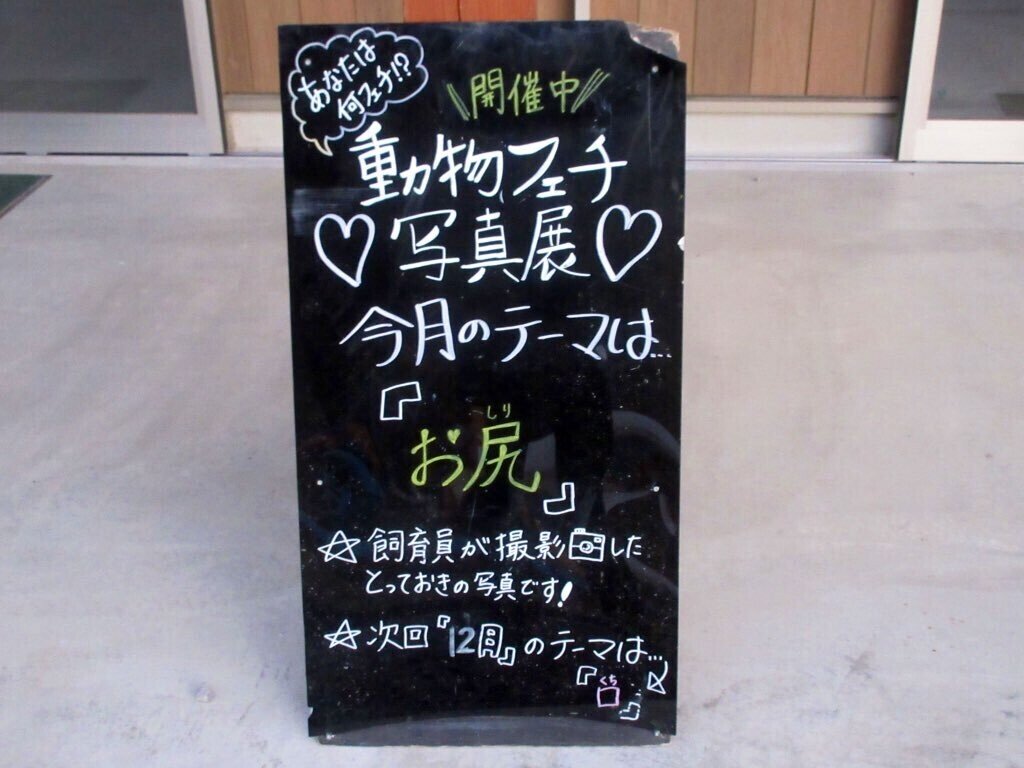 あなたは
何フェチ!?
開催中
動物フェチ
♡写真展♡
今月のテーマは…
『
しり
お尻
』
☆飼育員が撮影📷した
とっておきの写真です!
☆次回『12月』のテーマは…
くち
『口』